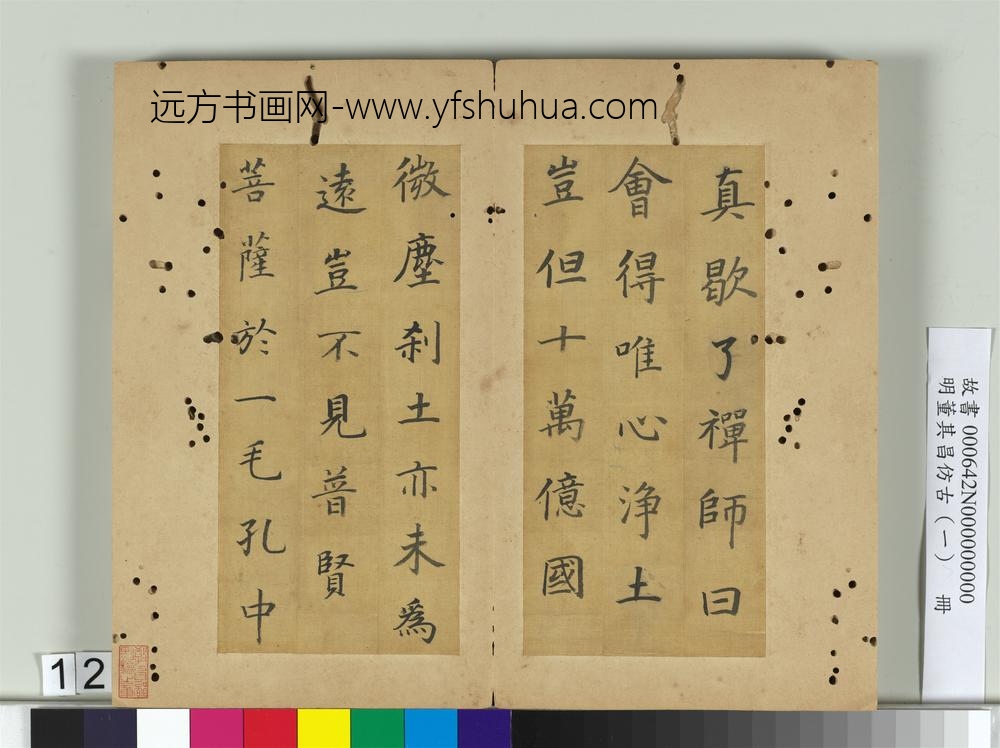 远方书画网-www.yfshuhua.com
真歇了禪師曰
會得唯心浄土
豈但十萬億國
微塵刹土亦未為
遠豈不見普賢
菩薩於一毛孔中
故書 000642N000000000
明董其昌仿古（一） 冊
12